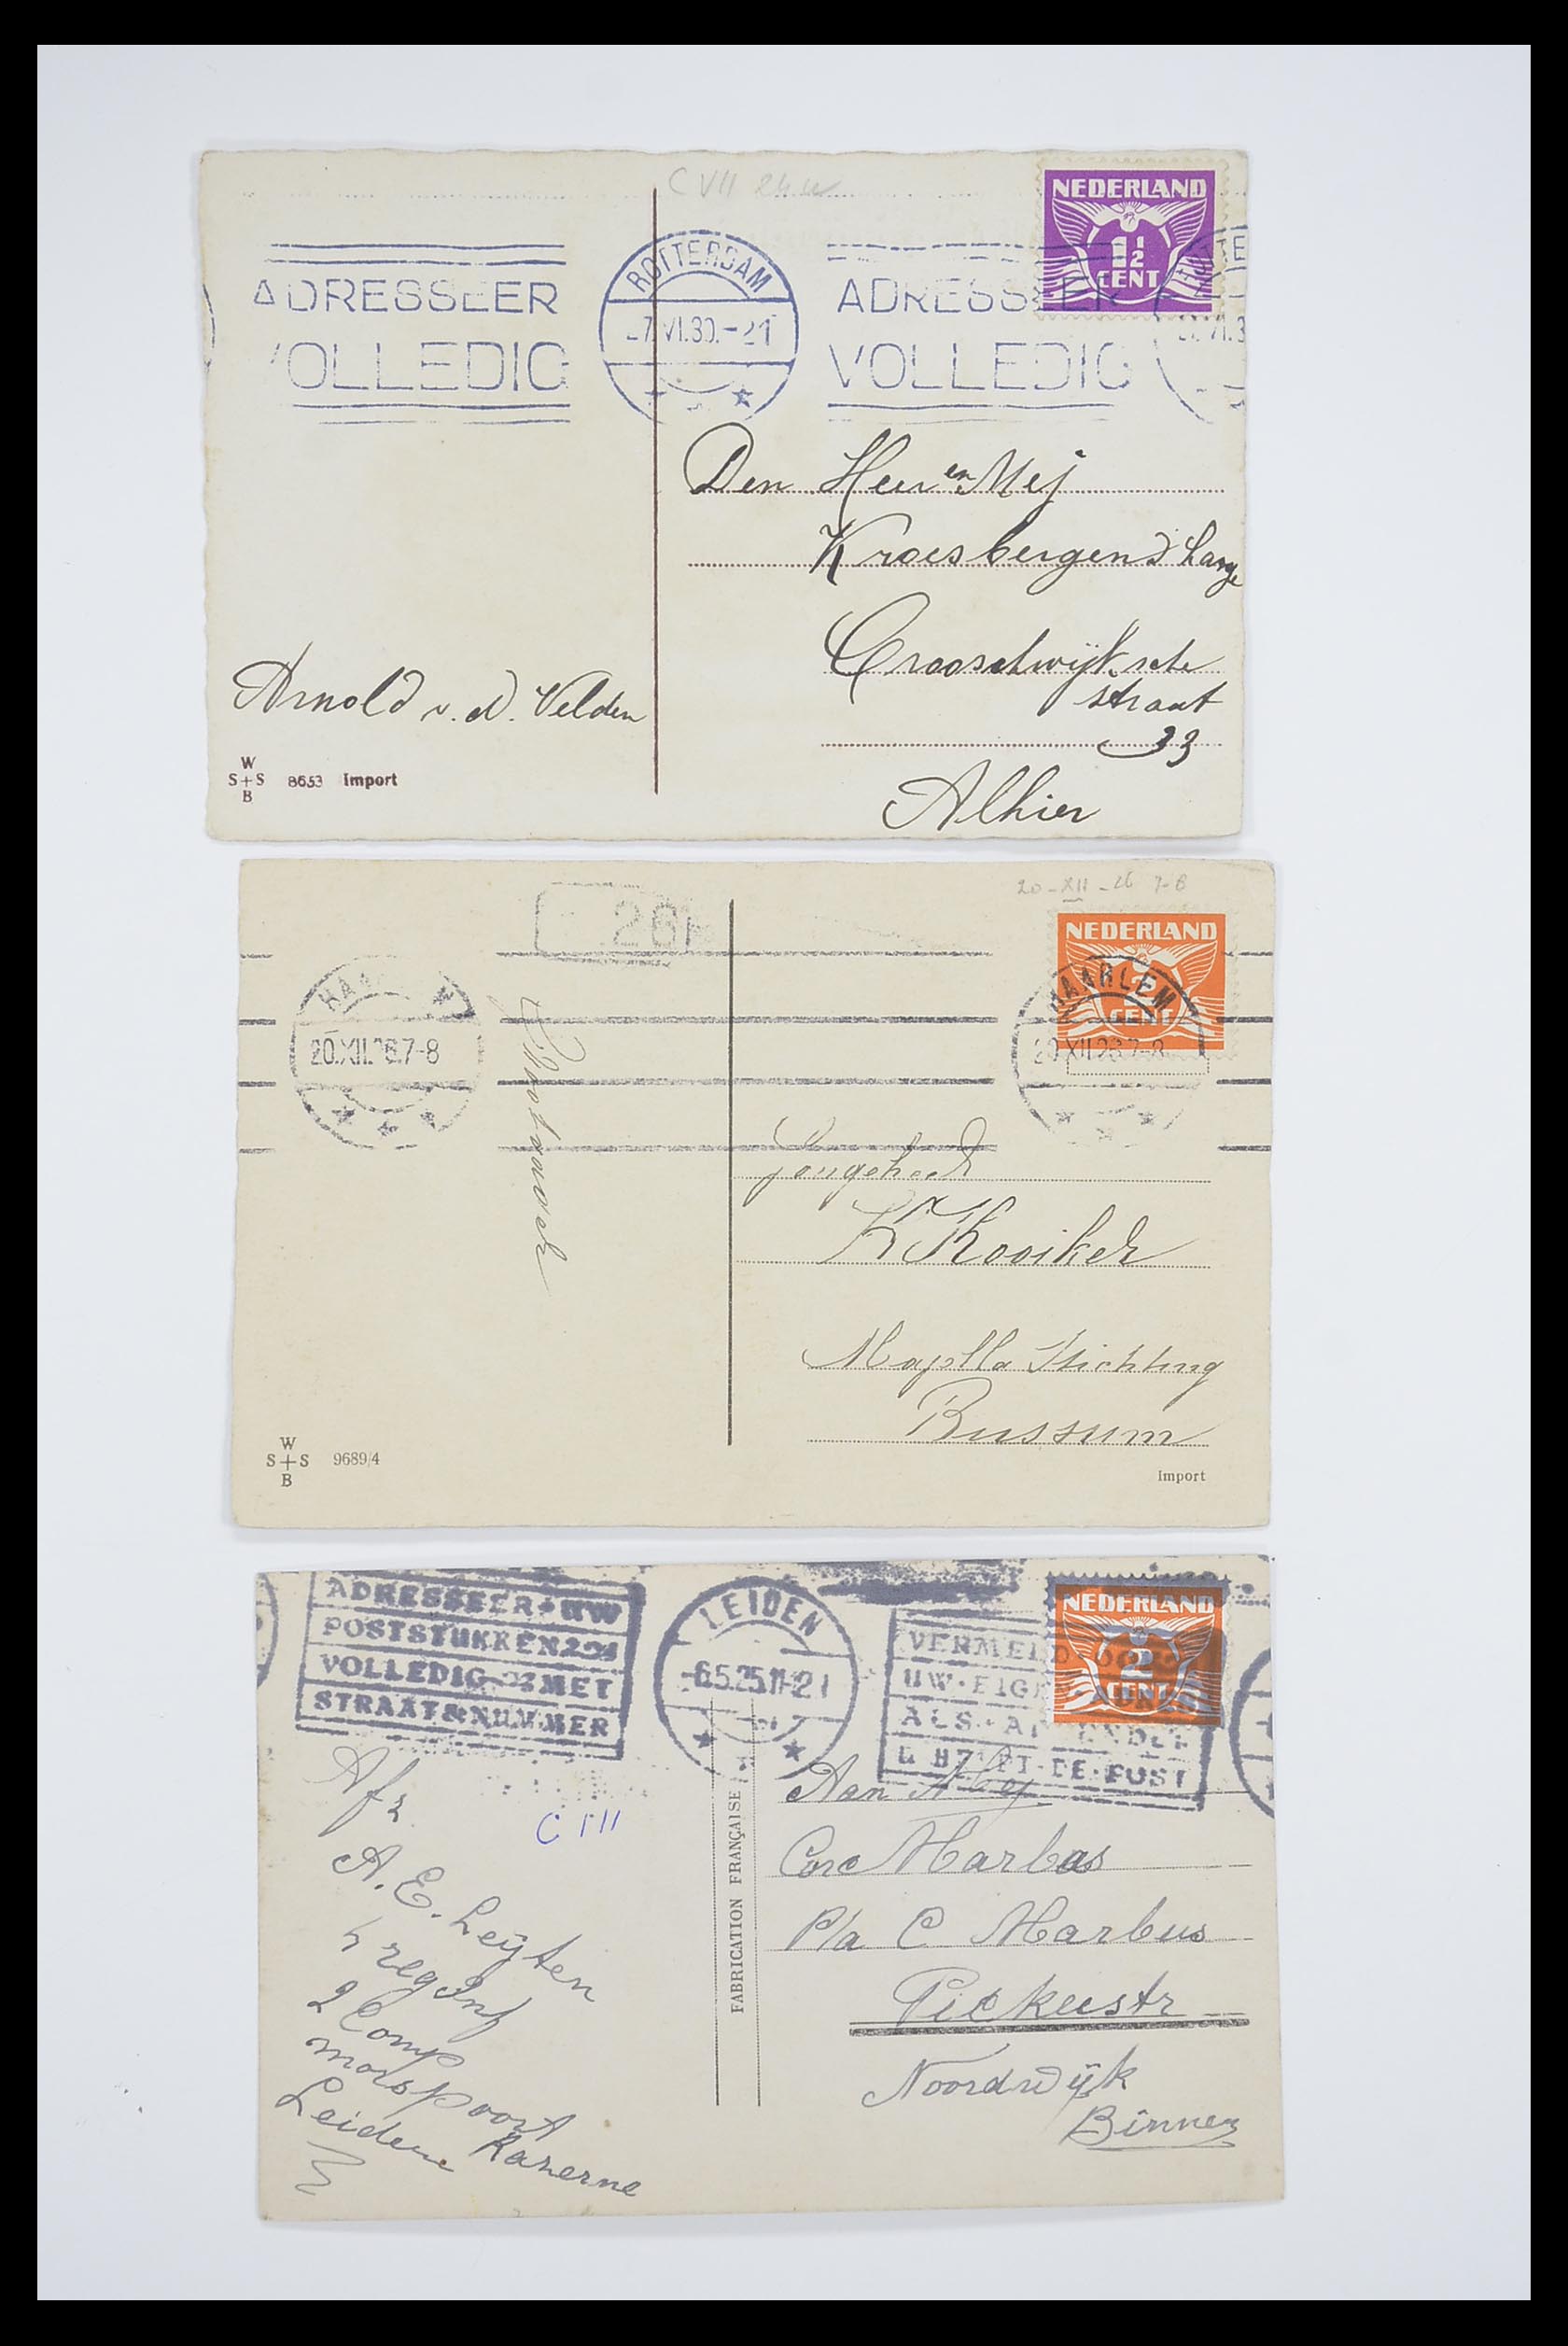 C VII
NEDERLAND
1½
CENT
ROTTERDAM
ADRESSEER
ADRESSEER
-7.VI.30.-21
VOLLEDIG
VOLLEDIG
Den Heer en Mej
Kroesbergen d Lange
Crooschwijksche
straat
33
Alhier
Arnold v. d. Velden
W
S+S 8653 Import
B
20-XII-26 7-8
26
NEDERLAND
2
CENT
HAARLEM
20.XII.26.7-8
20.XII.26.7-8
Jongeheer
K Kooiker
Stichting
Bussum
W
S+S 9689/4
B
Import
ADRESSEER UW
POSTSTUKKEN
VOLLEDIG MET
STRAAT & NUMMER
LEIDEN
-6.5.25.11-12
NEDERLAND
2
CENT
VERMELD OOK
UW·EIGEN·ADRES
ALS·AFZENDER
U HELPT·DE·POST
Afz
C III
A. E. Leijten
4 reg Inf
2 Comp
morspoort
Kazerne
Leiden
FABRICATION FRANÇAISE
Aan Mej
Corc Marbus
P/a C Marbus
Noordwijk
Binnen